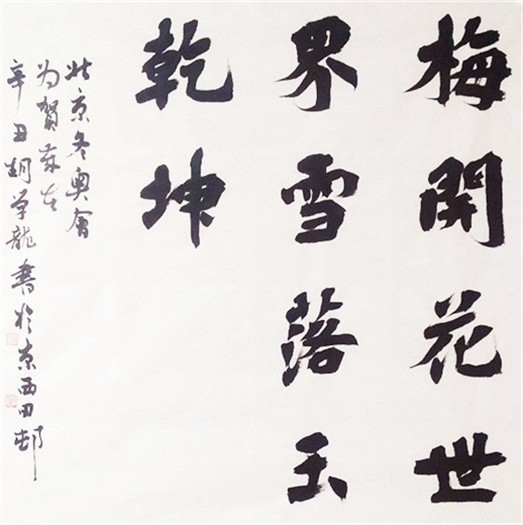 梅開花世
界雪落玉
乾坤
北京冬奥會
为賀歲在
辛丑胡学龍書於京西田邨